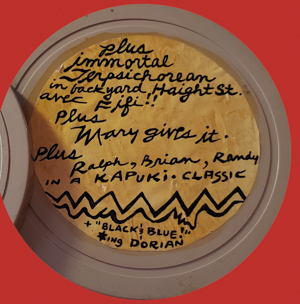 plus
immortal
Terpsichorean
in backyard, Haight St.
avec Fifi!!
Plus
Mary gives it.
Plus
Ralph, Brian, Randy
IN A KAPUKI-CLASSIC
+ "BLACK & BLUE!"
*ing DORIAN